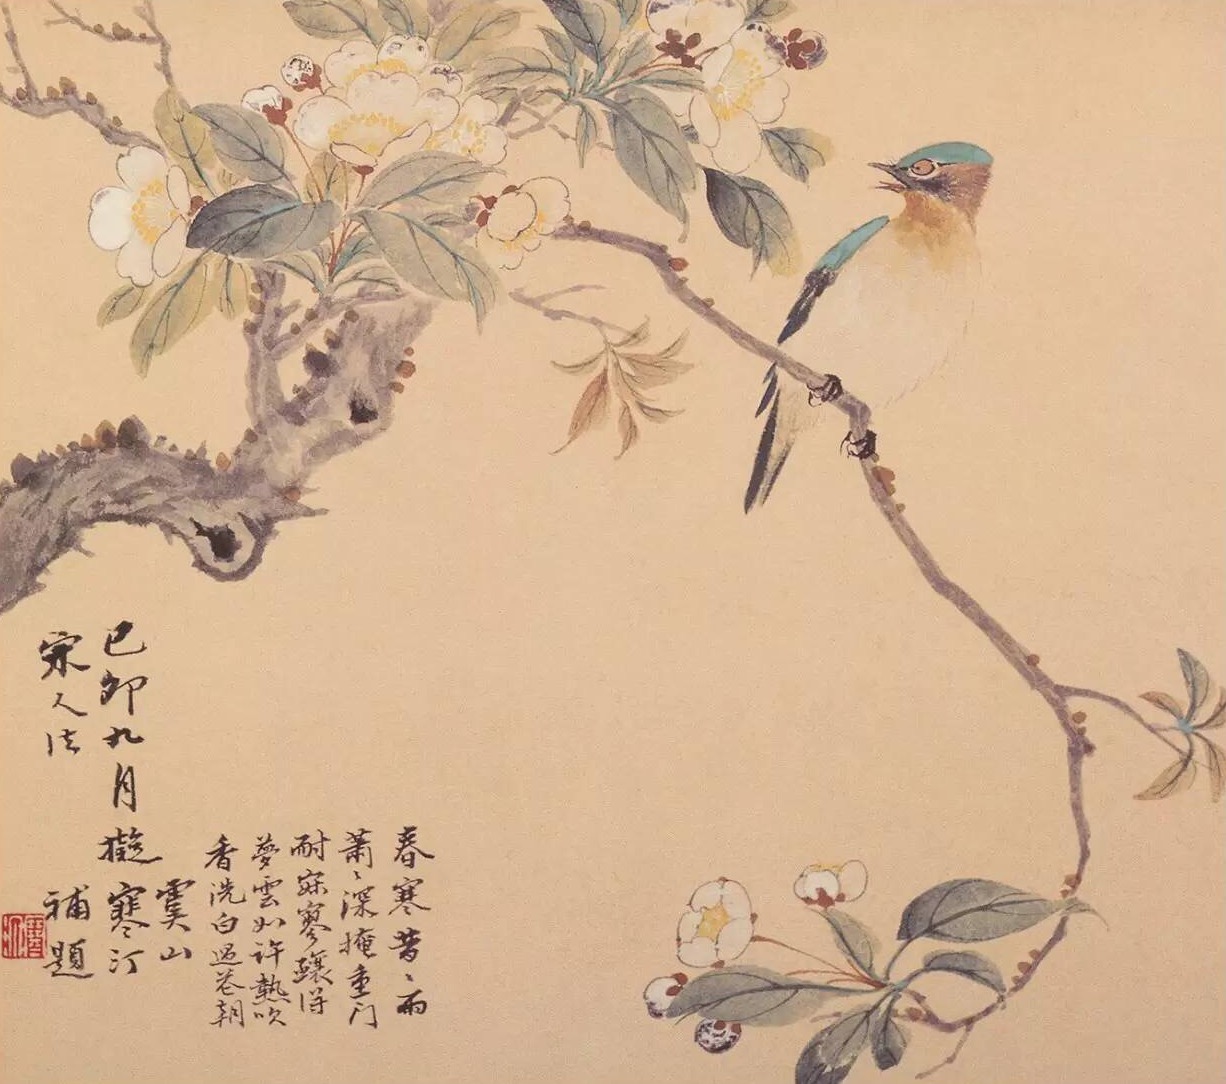 春寒昔〻雨
蕭〻深掩重门
耐寂寥釀得
夢雲如许熱吹
香洗白過花朝
己卯九月擬
宋人法
虞山
寒汀
補題